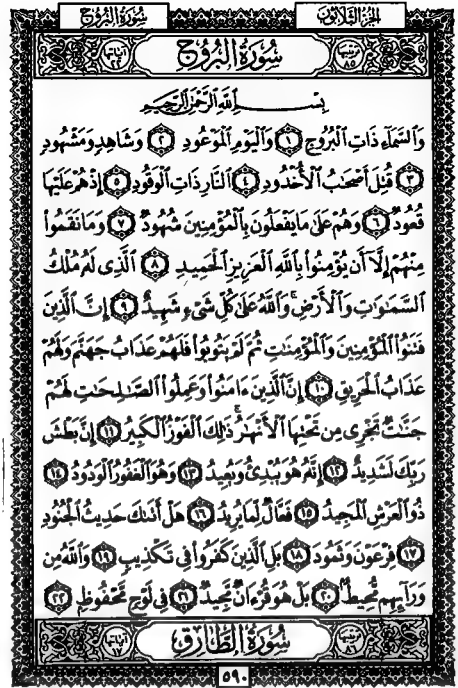 الجزء الثلاثون سُورَةُ البُرُوج
ترتيبها ٨٥ سُورَةُ البُرُوج آياتها ٢٢
بِسْمِ اللَّهِ الرَّحْمَٰنِ الرَّحِيمِ
وَالسَّمَاءِ ذَاتِ الْبُرُوجِ ١ وَالْيَوْمِ الْمَوْعُودِ ٢ وَشَاهِدٍ وَمَشْهُودٍ
٣ قُتِلَ أَصْحَابُ الْأُخْدُودِ ٤ النَّارِ ذَاتِ الْوَقُودِ ٥ إِذْ هُمْ عَلَيْهَا
قُعُودٌ ٦ وَهُمْ عَلَىٰ مَا يَفْعَلُونَ بِالْمُؤْمِنِينَ شُهُودٌ ٧ وَمَا نَقَمُوا
مِنْهُمْ إِلَّا أَن يُؤْمِنُوا بِاللَّهِ الْعَزِيزِ الْحَمِيدِ ٨ الَّذِي لَهُ مُلْكُ
السَّمَاوَاتِ وَالْأَرْضِ ۚ وَاللَّهُ عَلَىٰ كُلِّ شَيْءٍ شَهِيدٌ ٩ إِنَّ الَّذِينَ
فَتَنُوا الْمُؤْمِنِينَ وَالْمُؤْمِنَاتِ ثُمَّ لَمْ يَتُوبُوا فَلَهُمْ عَذَابُ جَهَنَّمَ وَلَهُمْ
عَذَابُ الْحَرِيقِ ١٠ إِنَّ الَّذِينَ ءَامَنُوا وَعَمِلُوا الصَّالِحَاتِ لَهُمْ
جَنَّاتٌ تَجْرِي مِن تَحْتِهَا الْأَنْهَارُ ۚ ذَٰلِكَ الْفَوْزُ الْكَبِيرُ ١١ إِنَّ بَطْشَ
رَبِّكَ لَشَدِيدٌ ١٢ إِنَّهُ هُوَ يُبْدِئُ وَيُعِيدُ ١٣ وَهُوَ الْغَفُورُ الْوَدُودُ ١٤
ذُو الْعَرْشِ الْمَجِيدُ ١٥ فَعَّالٌ لِّمَا يُرِيدُ ١٦ هَلْ أَتَاكَ حَدِيثُ الْجُنُودِ
١٧ فِرْعَوْنَ وَثَمُودَ ١٨ بَلِ الَّذِينَ كَفَرُوا فِي تَكْذِيبٍ ١٩ وَاللَّهُ مِن
وَرَائِهِم مُّحِيطٌ ٢٠ بَلْ هُوَ قُرْءَانٌ مَّجِيدٌ ٢١ فِي لَوْحٍ مَّحْفُوظٍ ٢٢
ترتيبها ٨٦ سُورَةُ الطَّارِق آياتها ١٧
٥٩٠